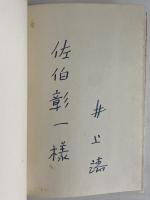 佐伯彰一様
井上靖